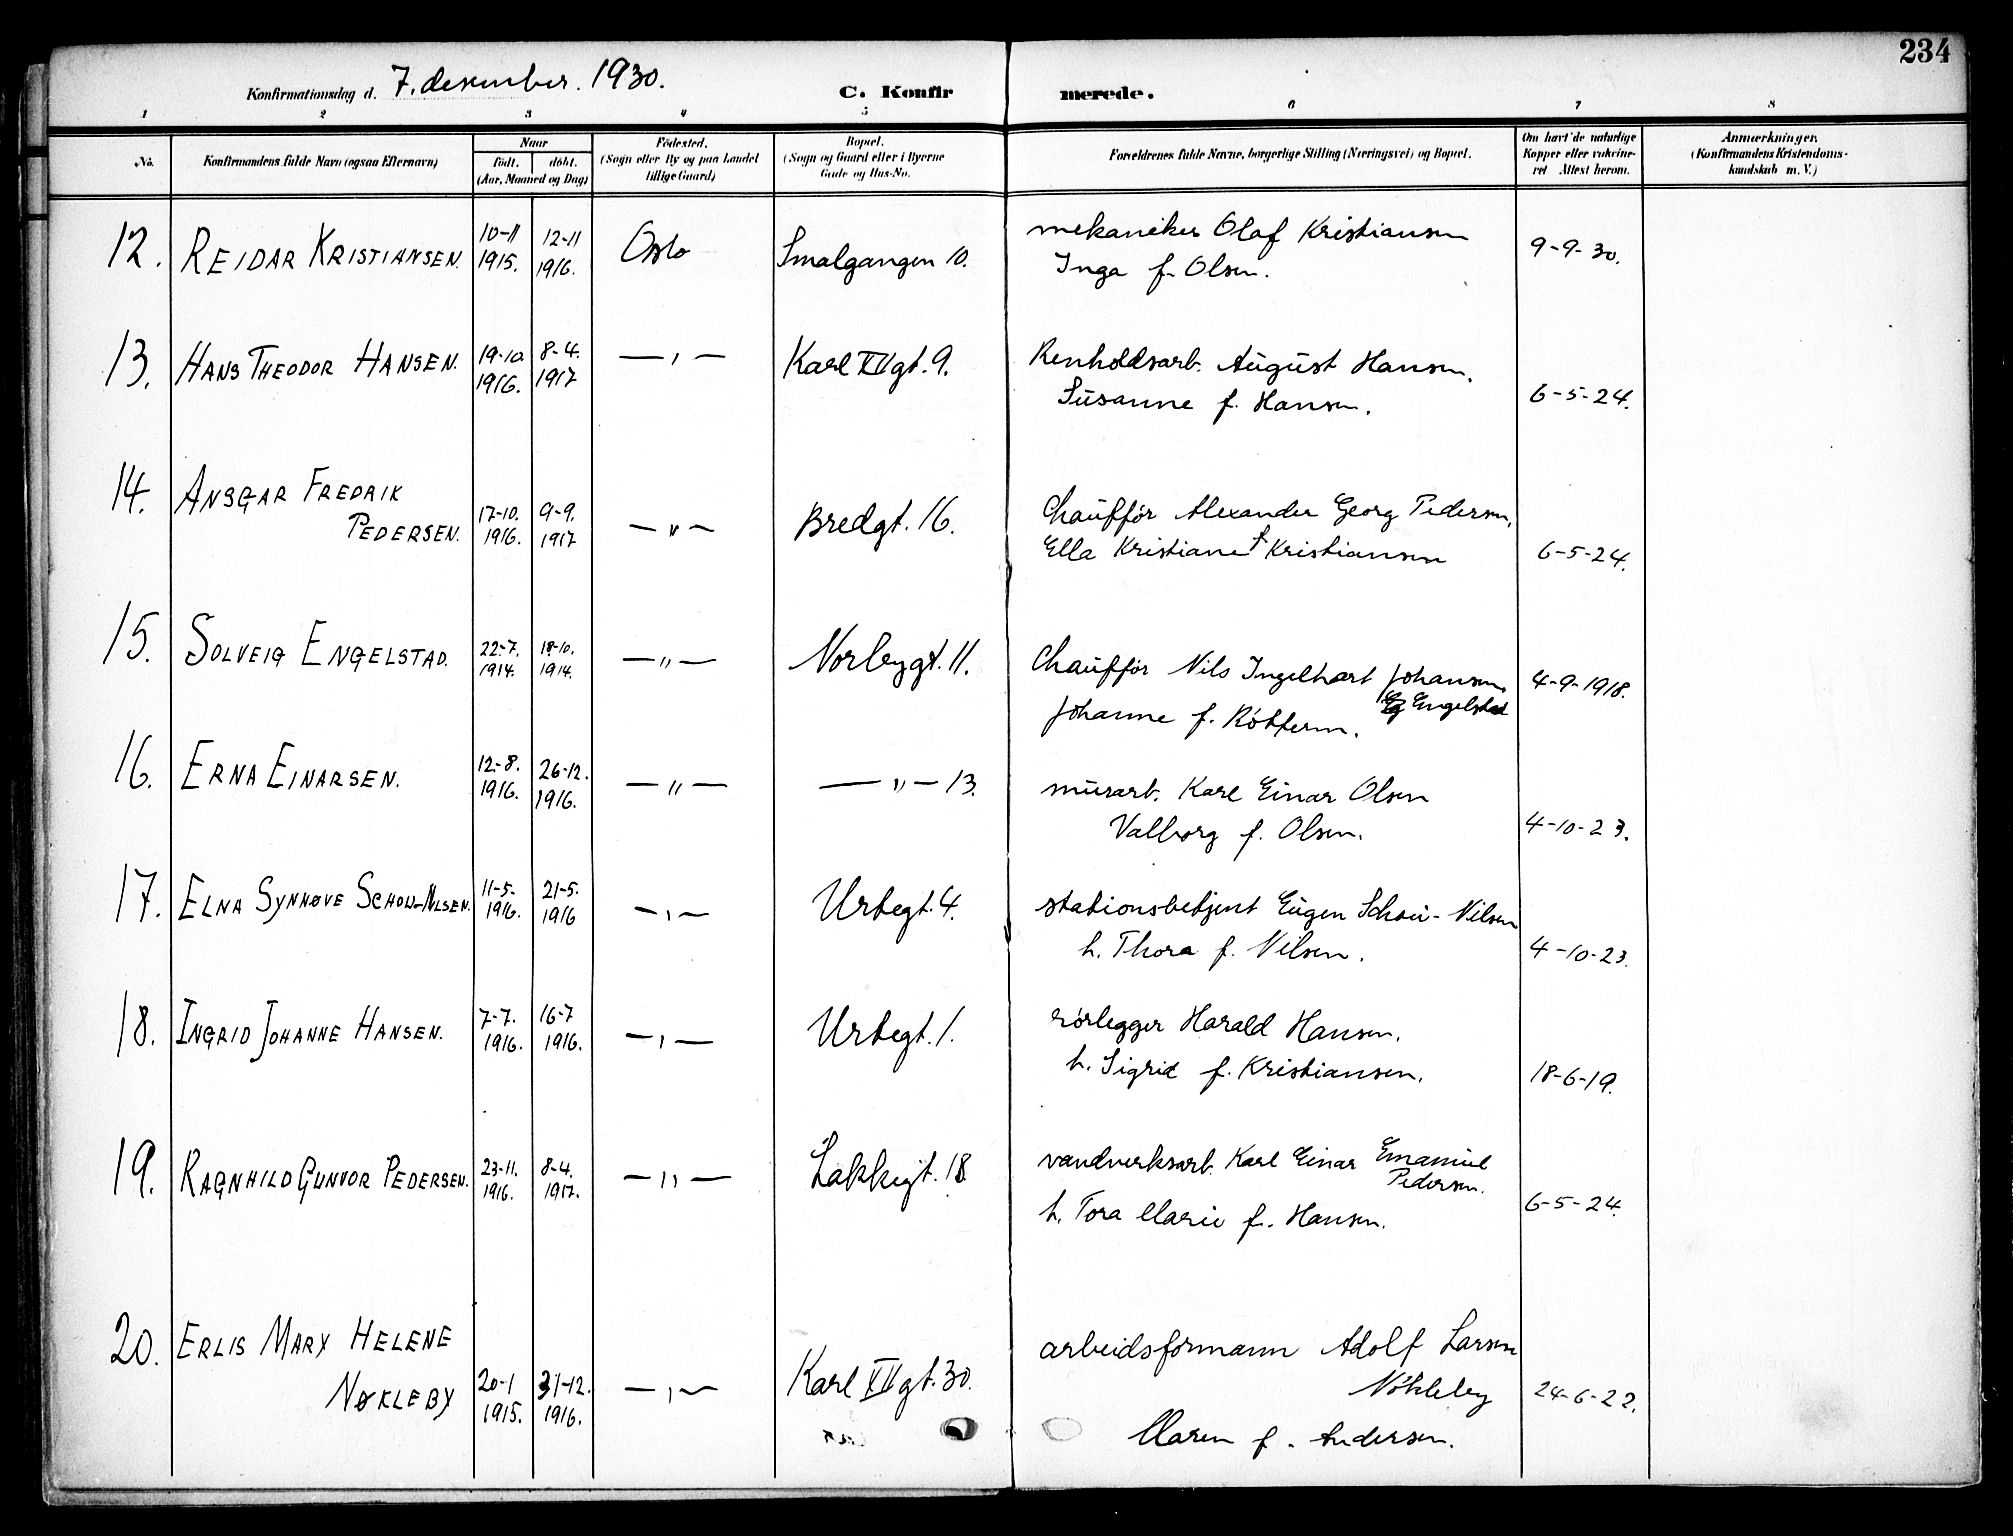 234
Konfirmationsdag d. 7. desember. 1930.
C. Konfirmerede.
1 2 3 4 5 6 7 8
No.
Konfirmandens fulde Navn (ogsaa Efternavn)
Naar
født. døbt.
(Aar, Maaned og Dag)
Fødested.
(Sogn eller By og paa Landet
tillige Gaard)
Bopæl.
(Sogn og Gaard eller i Byerne
Gade og Hus-No.
Forældrenes fulde Navne, borgerlige Stilling (Næringsvei) og Bopæl.
Om havt de naturlige
Kopper eller vakcine-
ret Attest herom.
Anmærkninger.
(Konfirmandens Kristendoms-
kundskab m. V.)
12. REIDAR KRISTIANSEN. 10-11 1915. 12-11 1916. Oslo Smalgangen 10. mekaniker Olaf Kristiansen
Inga f. Olsen. 9-9-30.
13. HANS THEODOR HANSEN. 19-10. 1916. 8-4. 1917 — , — Karl XII gt. 9. Renholdsarb. August Hansen.
Susanne f. Hansen. 6-5-24.
14. ANSGAR FREDRIK
PEDERSEN. 17-10. 1916. 9-9. 1917 — " — Bredgt. 16. Chauffør Alexander Georg Pedersen,
Ella Kristiane f. Kristiansen 6-5-24.
15. SOLVEIG ENGELSTAD. 22-7. 1914. 18-10. 1914. — " — Norbygt. 11. Chauffør Nils Ingelhart Johansen
Engelstad 4-9-1918.
Johanne f. Róttern.
16. ERNA EINARSEN. 12-8. 1916. 26-12. 1916. — " — — " — 13. murarb. Karl Einar Olsen
Valborg f. Olsen. 4-10-23.
17. ELNA SYNNØVE SCHOU-NILSEN. 11-5. 1916. 21-5. 1916 — , — Urtegt. 4. stationsbetjent Eugen Schou-Nilsen
h. Thora f. Nilsen. 4-10-23.
18. INGRID JOHANNE HANSEN. 7-7. 1916. 16-7 1916. — , — Urtegt. 1. rørlegger Harald Hansen.
h. Sigrid f. Kristiansen. 18-6-19.
19. RAGNHILD GUNVOR PEDERSEN. 23-11. 1916. 8-4. 1917. — " — Lakkegt. 18 vandverksarb. Karl Einar Emanuel
Pedersen.
h. Tora Marie f. Hansen. 6-5-24.
20. ERLIS MARY HELENE
NØKLEBY 20-1 1915. 31-12. 1916. — , — Karl XII gt. 30. arbeidsformann Adolf Larsen
Nökleby 24-6-22.
Maren f. Andersen.